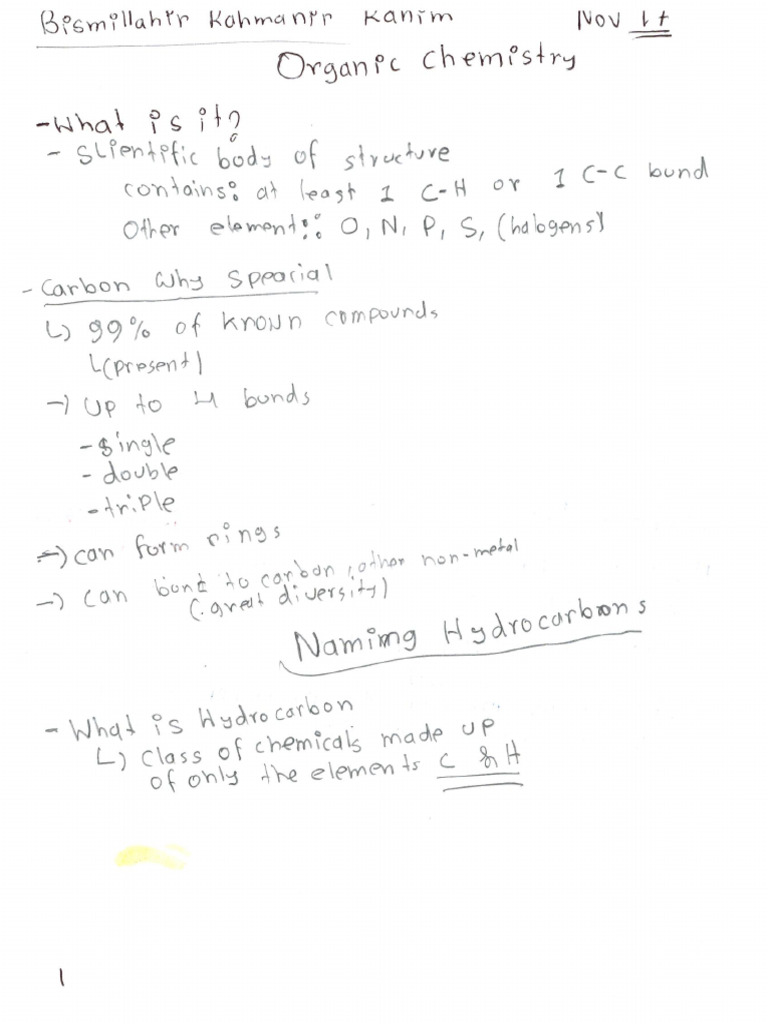 Bismillahir Rahmanir Rahim Nov 17
Organic Chemistry
- What is it?
- Scientific body of structure
contains: at least 1 C-H or 1 C-C bund
Other element:: O, N, P, S, (halogens)
- Carbon Why Spearial
↳ 99% of known compounds
↳(present)
→ Up to 4 bunds
- single
- double
- triple
→ can form rings
→ can bond to carbon, other non-metal
(great diversity)
Naming Hydrocarbons
- What is Hydrocarbon
↳ Class of chemicals made up
of only the elements C & H
1